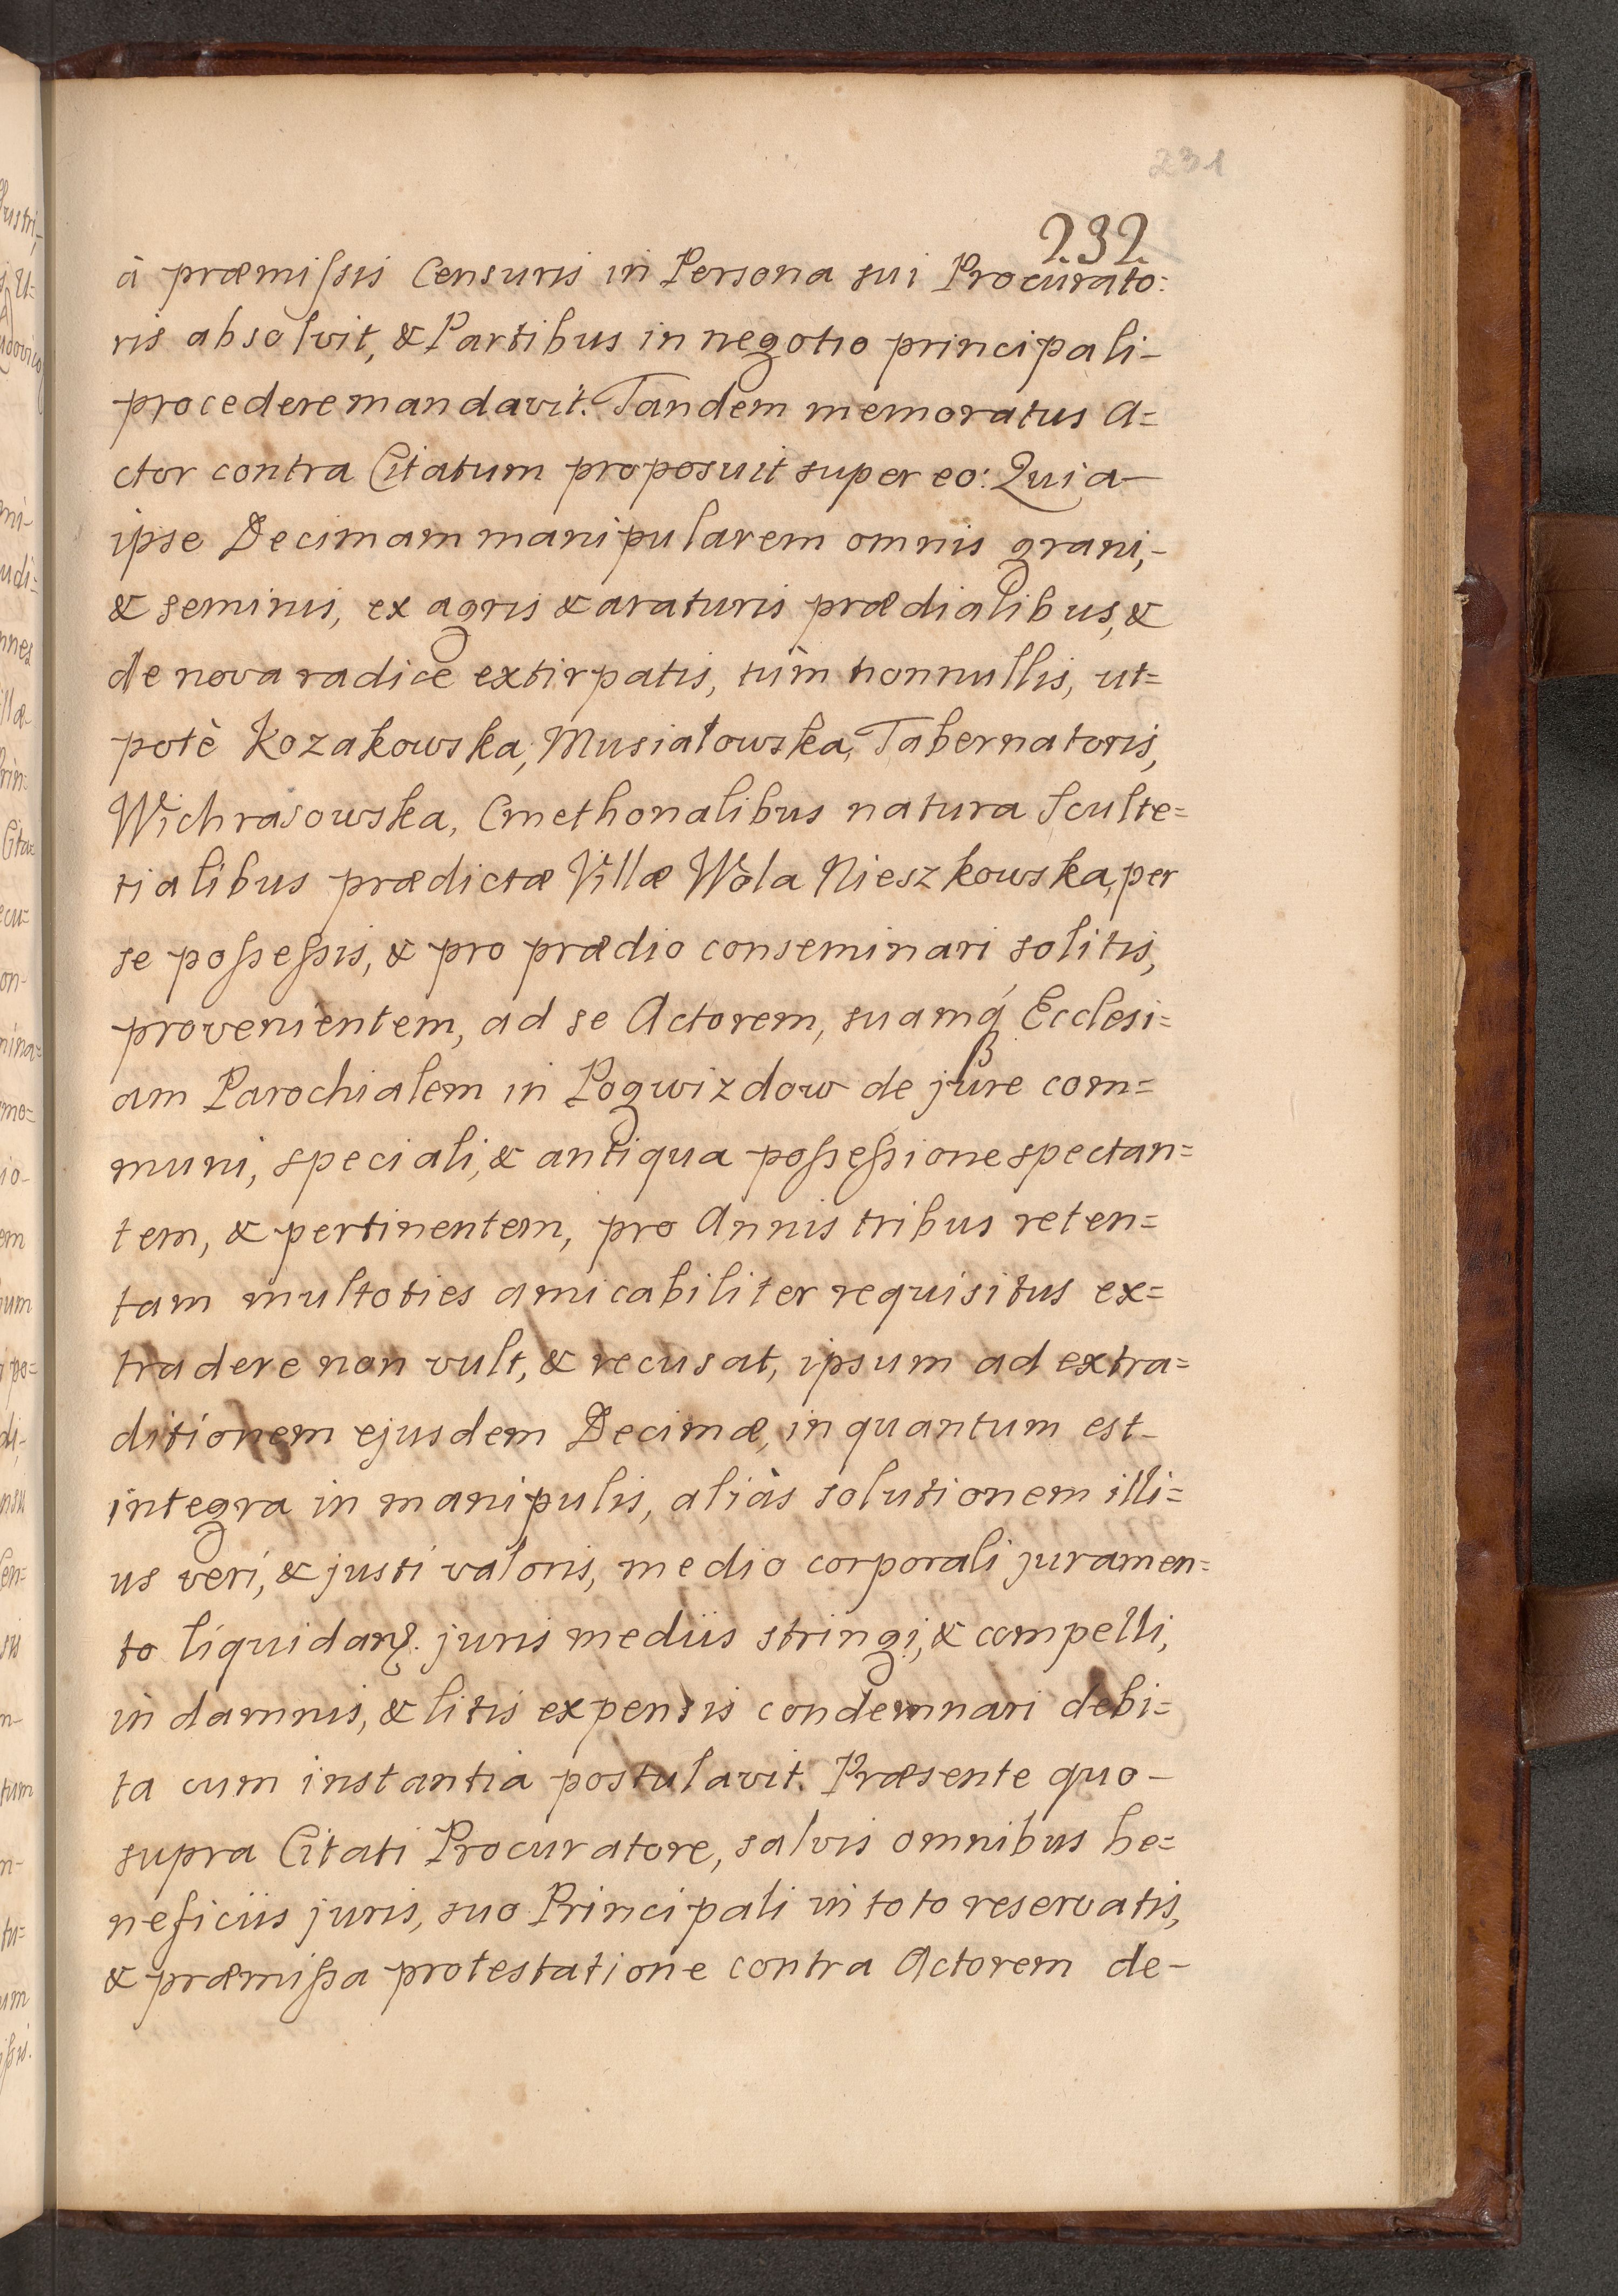 231
232
à præmissis Censuris in Persona sui Procurato:
ris absolvit, & Partibus in negotio principali-
procedere mandavit. Tandem memoratus A=
ctor contra Citatum proposuit super eo: Quia-
ipse Decimam manipularem omnis grani,-
& seminis, ex agris & araturis prædialibus, &
de nova radice extirpatis, tùm nonnullis, ut=
potè Kozakowska, Musiałowska, Tabernatoris,
Wichrasowska, Cmethonalibus natura Sculte=
tialibus prædictæ Villæ Wola Nieszkowska, per
se possessis, & pro prædio conseminari solitis,
provenientem, ad se Actorem, suamq́ Ecclesi=
am Parochialem in Pogwizdow de jure com=
muni, speciali, & antiqua possessione spectan=
tem, & pertinentem, pro Annis tribus reten=
tam multoties amicabiliter requisitus ex=
tradere non vult, & recusat, ipsum ad extra=
ditionem ejusdem Decimæ, in quantum est-
integra in manipulis, aliàs solutionem illi=
us veri, & justi valoris, medio corporali juramen=
to liquidanḍ. juris mediis stringi, & compelli,
in damnis, & litis expensis condemnari debi=
ta cum instantia postulavit. Præsente quo-
supra Citati Procuratore, salvis omnibus be=
neficiis juris, suo Principali in toto reservatis,
& præmissa protestatione contra Actorem de-